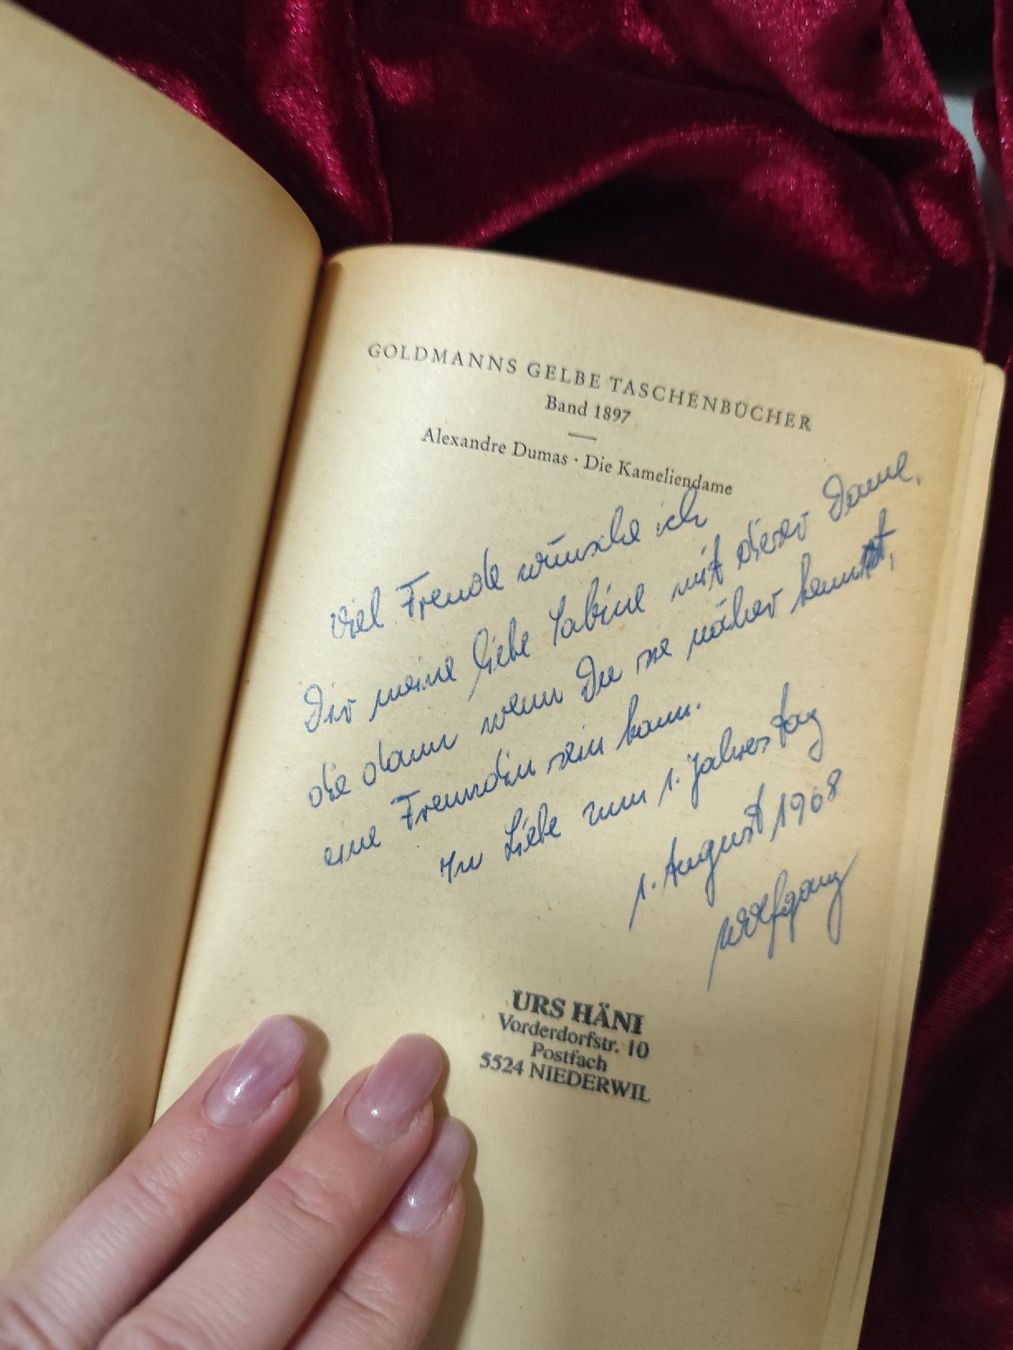 GOLDMANNS GELBE TASCHENBÜCHER
Band 1897
Alexandre Dumas · Die Kameliendame
Viel Freude wünsche ich
Dir meine liebe Sabine mit dieser Dame,
die dann wenn Du sie näher kennst,
eine Freundin sein kann.
In Liebe zum 1. Jahrestag
1. August 1968
Wolfgang
URS HÄNI
Vorderdorfstr. 10
Postfach
5524 NIEDERWIL